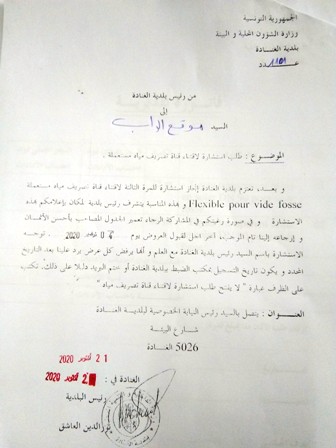 الجمهورية التونسية
وزارة الشؤون المحلية و البيئة
بلدية الغنادة
عـــدد 1101
من رئيس بلدية الغنادة
إلى
السيد موقع الواب
الموضوع : طلب استشارة لاقتناء قناة تصريف مياه مستعملة .
و بعد، تعتزم بلدية الغنادة إنجاز استشارة للمرة الثالثة لاقتناء قناة تصريف مياه مستعملة
Flexible pour vide fosse و بهذه المناسبة يتشرف رئيس بلدية المكان بإعلامكم بهذه
الاستشارة و في صورة رغبتكم في المشاركة الرجاء تعمير الجدول المصاحب بأحسن الأثمان
و إرجاعه إلينا تام الموجب، آخر أجل لقبول العروض يوم نوفمبر 2020 . توجه
الاستشارة باسم السيد رئيس بلدية الغنادة مع العلم و أنها يرفض كل عرض يرد علينا بعد التاريخ
المحدد و يكون تاريخ التسجيل بمكتب الضبط ببلدية الغنادة أو ختم البريد دليلا على ذلك. تكتب
على الظرف عبارة " لا يفتح طلب استشارة لاقتناء قناة تصريف مياه"
العنـــوان : يتصل بالسيد رئيس النيابة الخصوصية لبلديــة الغنـــادة
شـــارع البيئـــة
5026 الغنـــادة
21 أكتوبر 2020
الغنادة في : أكتوبر 2020
رئيس البلدية
نور الدين العاشق